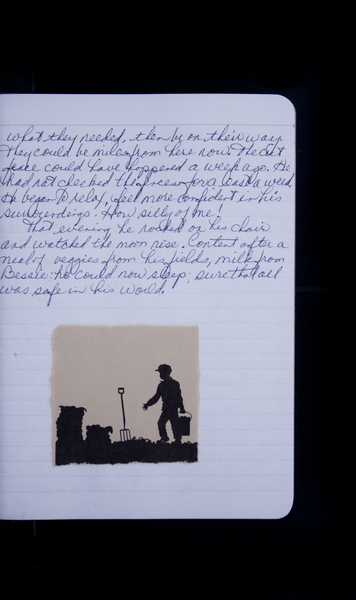 what they needed, then be on their way.
They could be miles from here now. The cut
fence could have happened a week ago. He
had not checked this area for at least a week.
He began to relax, feel more confident in his
surroundings. How silly of me!
That evening he rocked on his chair
and watched the moon rise. Content after a
meal of veggies from his fields, milk from
Bessie; he could now sleep; sure that all
was safe in his world.